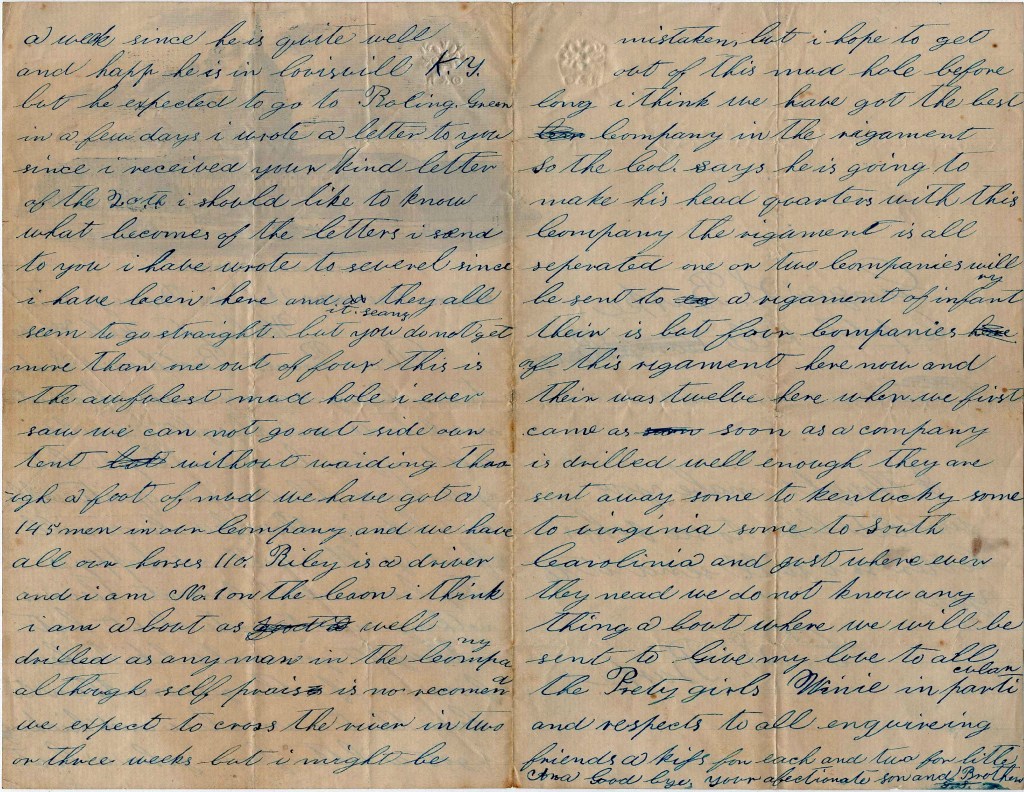 a week since he is quite well
and happ he is in lovisvill K.Y.
but he expected to go to Boling. Green
in a few days i wrote a letter to you
since i received your kind letter
of the i should like to know
what becomes of the letters i send
to you i have wrote to severel since
i have been here and they all
it. seams
seem to go straight. but you do not get
more than one out of four this is
the awfulest mud hole i ever
saw we can not go out side our
tent without waiding throo
ugh a foot of mud we have got a
145 men in our Company and we have
all our horses 110. Riley is a driver
and i am No. 1 on the Canon i think
i am a bout as well
drilled as any man in the Compa
ny
although self prais is no recomen
we expect to cross the river in two
or three weeks but i might be
mistaken, but i hope to get
out of this mud hole before
long i think we have got the best
Company in the rigament
So the Col. says he is going to
make his head quarters with this
Company the rigament is all
seperated one or two Companies will
be sent to a rigament of infant
ry
their is but four Companies
of this rigament here now and
their was twelve here when we first
came as soon as a company
is drilled well enough they are
sent away some to kentucky some
to virginia some to South
Carolinia and just where ever
they nead we do not know any
thing a bout where we will be
sent to Give my love to all
the Prety girls Winie in parti
cular
and respects to all enquireing
friends a kiss for each and two for litle
Ana Good bye, your afectionate son and Brother